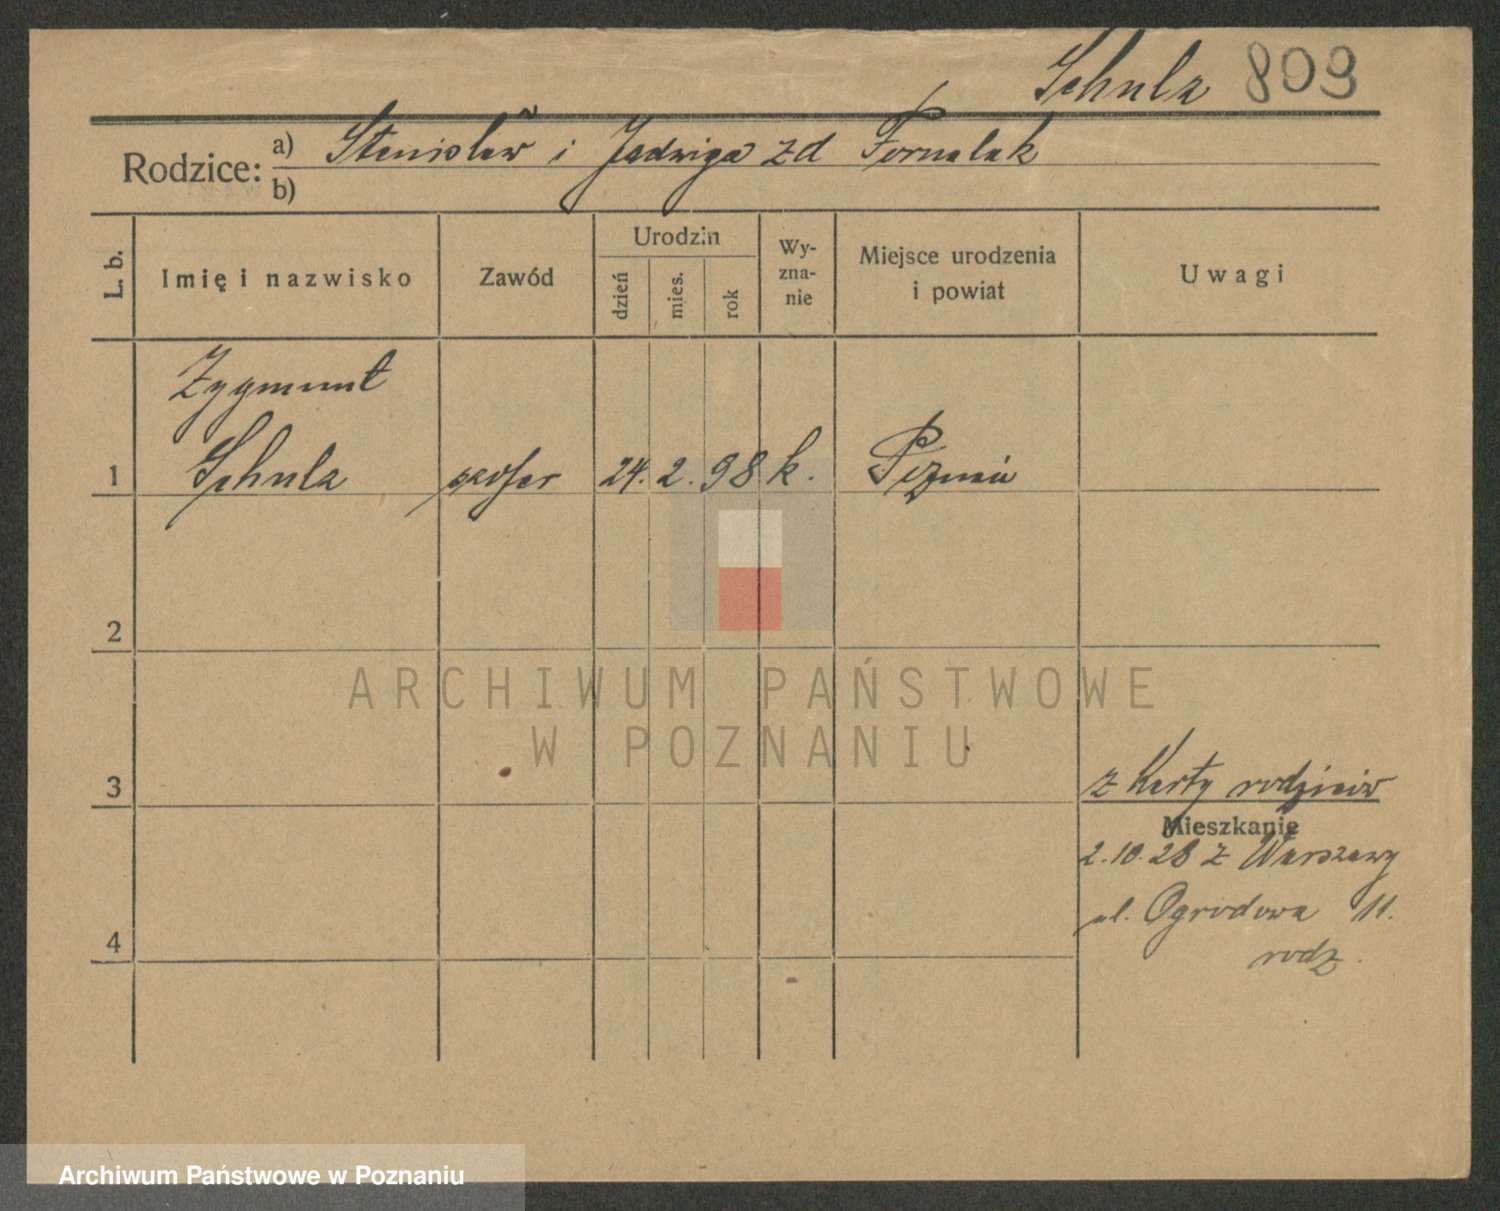 Schulz 809
Rodzice: a) Stanisław i Jadwiga zd Fornalak
b)
L. b. Imię i nazwisko Zawód Urodzin dzień mies. rok Wy-zna-nie Miejsce urodzenia i powiat Uwagi
Zygmunt
1 Schulz szofer 24. 2. 98 k. Poznań
2
ARCHIWUM PAŃSTWOWE
W POZNANIU
3 z Karty rodziców
Mieszkanie
2.10.28 z Warszawy
ul. Ogrodowa 11.
4 rodz.
Archiwum Państwowe w Poznaniu